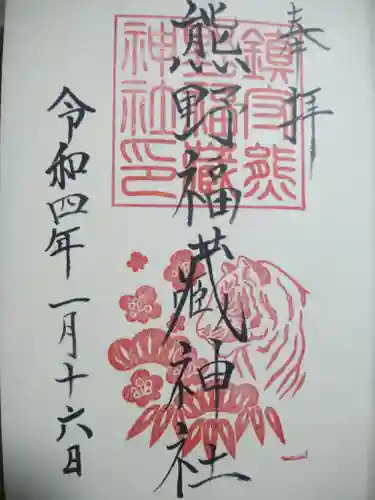 奉拝
熊野福蔵神社
鎮守熊野福蔵神社印
令和四年一月十六日